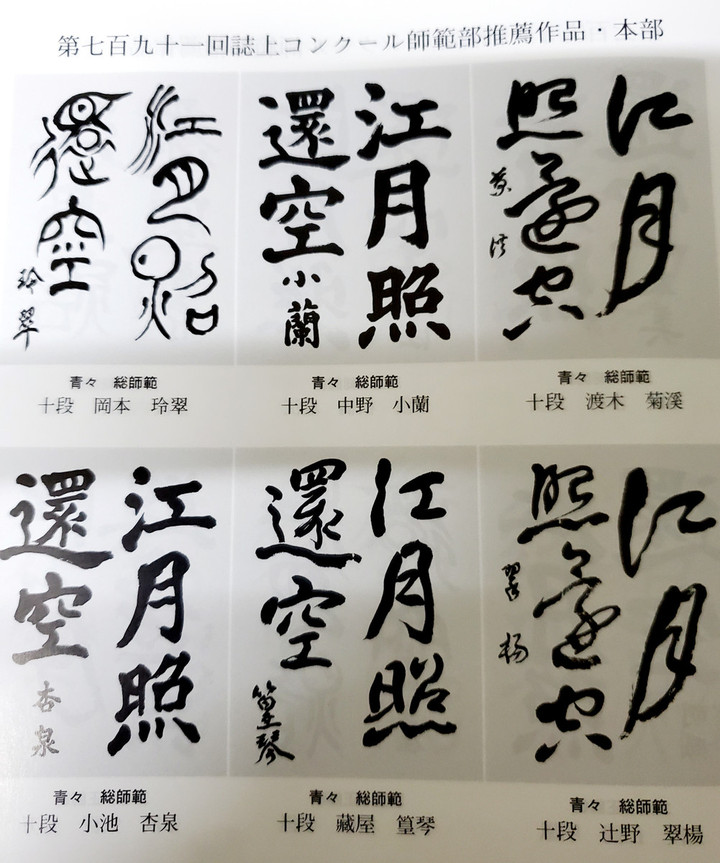 第七百九十一回誌上コンクール師範部推薦作品・本部
江月照
還空
玲翠
青々　総師範
十段　岡本　玲翠
江月照
還空
小蘭
青々　総師範
十段　中野　小蘭
江月
照還空
菊溪
青々　総師範
十段　渡木　菊溪
江月照
還空
杏泉
青々　総師範
十段　小池　杏泉
江月照
還空
篁琴
青々　総師範
十段　藏屋　篁琴
江月
照還空
翠楊
青々　総師範
十段　辻野　翠楊